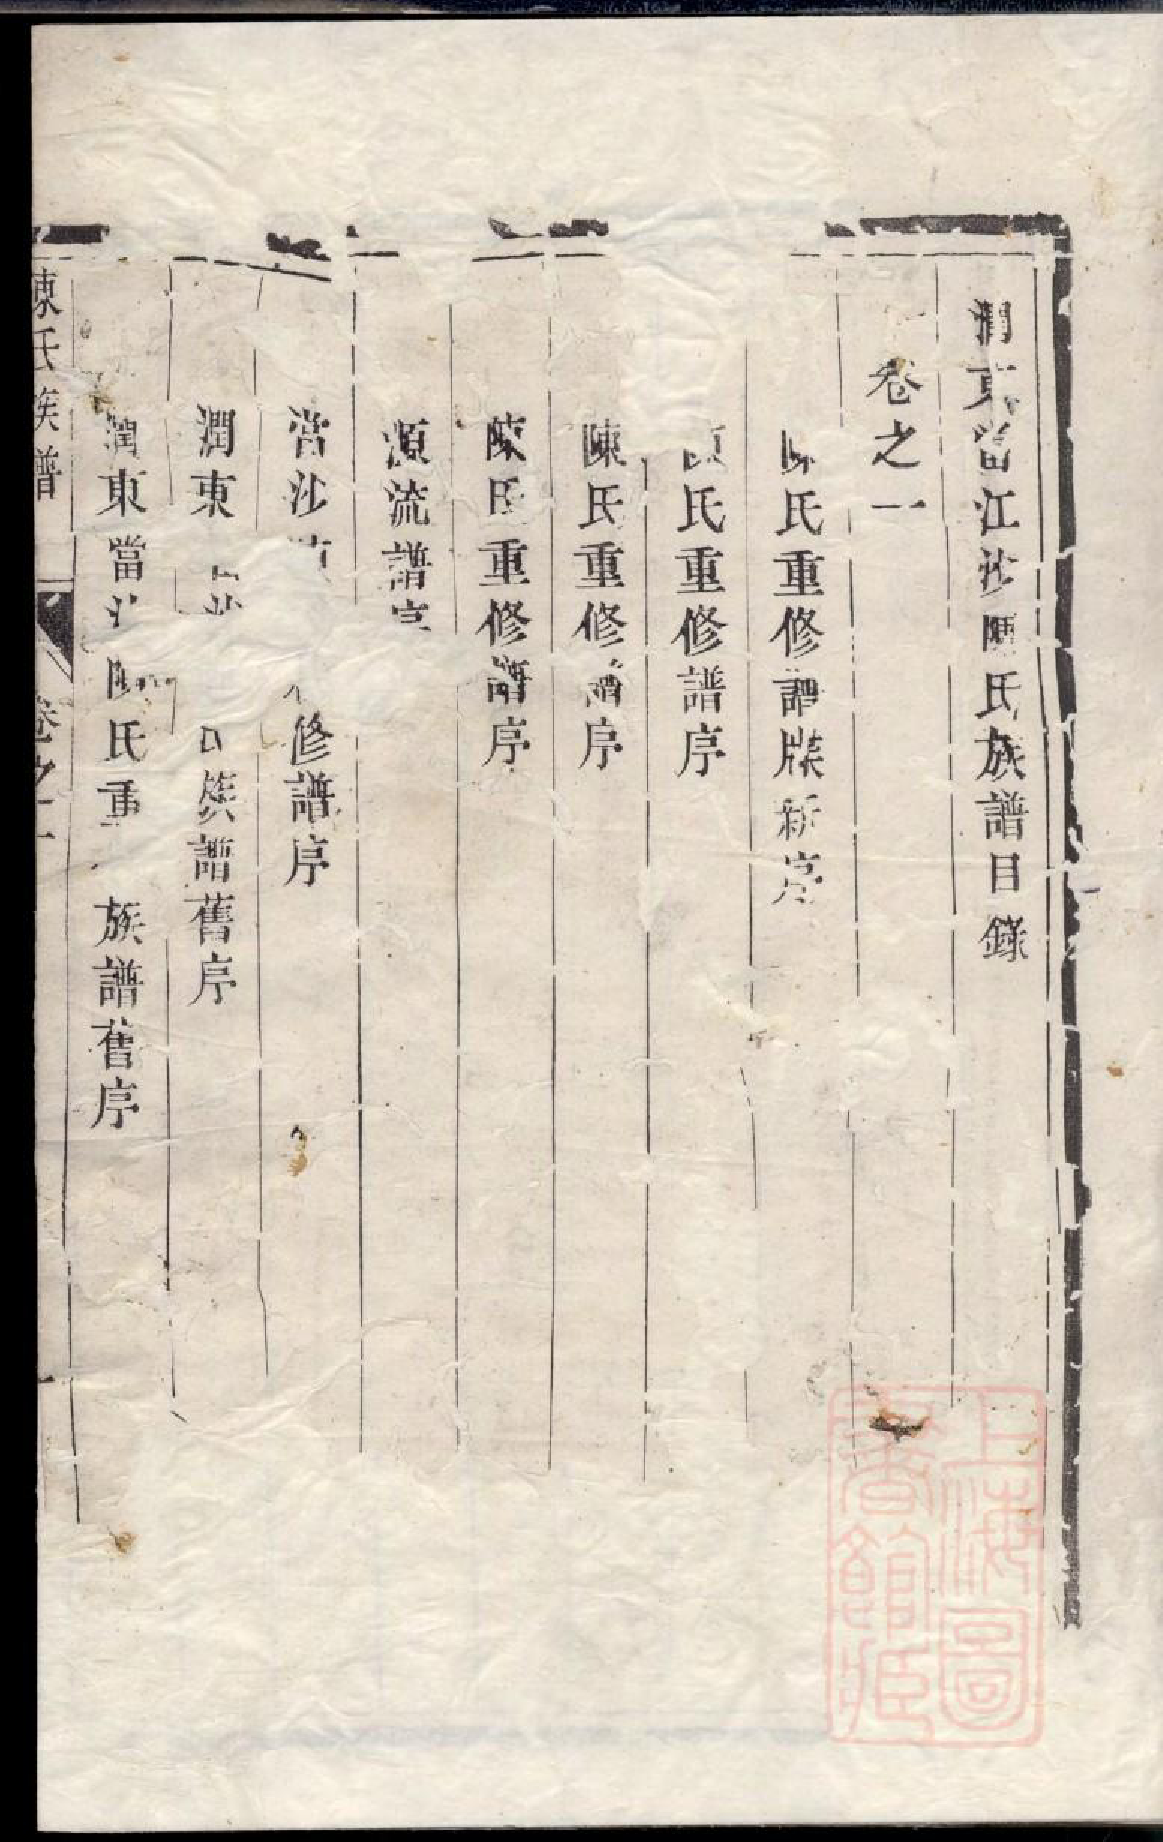 潤東當江沙陳氏族譜目錄
卷之一
陳氏重修譜牒新序
陳氏重修譜序
陳氏重修譜序
陳氏重修譜序
源流譜序
當沙 修譜序
潤東 沙 氏族譜舊序
潤東當沙陳氏重 族譜舊序
陳氏族譜
卷之一
上海圖書館藏